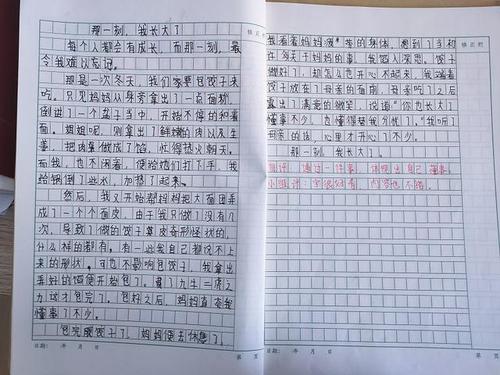 那一刻，我长大了
每个人都会有成长，而那一刻，最
令我难以忘记。
那是一次冬天，我们家要包饺子来
吃。只见妈妈从身旁拿出了一点面粉，
倒进了一个盆子当中，开始不停的和着
面。姐姐呢，则拿出了鲜嫩的肉以及生
姜，把肉菜做成了馅，忙得热火朝天。
而我，也不闲着，便给她们打下手，我
给锅倒了些水，加热了起来。
然后，我又开始帮妈妈把大面团弄
成了一个个面皮，由于我只做了没有几
次，导致了做的饺子算皮奇形怪状的，
什么样的都有，有一些我自己都说不上
来的形状，可也不影响包饺子，我拿出
弄好的馅便开始包了。费了九牛二虎之
力这才包完了。包好之后，妈妈直夸我
懂事了不少。
包完饺子了，妈妈便去休息了，
我看着妈妈疲惫的身体，想到了当初
许多关于妈妈的事，我陷入深思。饺子
做好了，却怎么也开心不起来。我端着
饺子放在了母亲的面前，母亲吃了之后
露出了满意的微笑，说道“你也长大了
懂事不少，也懂得替我分忧了。”我听了
母亲的话，心里才开心了不少。
那一刻，我长大了。
通过一件事，体现出自己懂事。
小组评：字很好看，内容也不错。
日期： 年 月 日
第 页
日期： 年 月 日
第 页